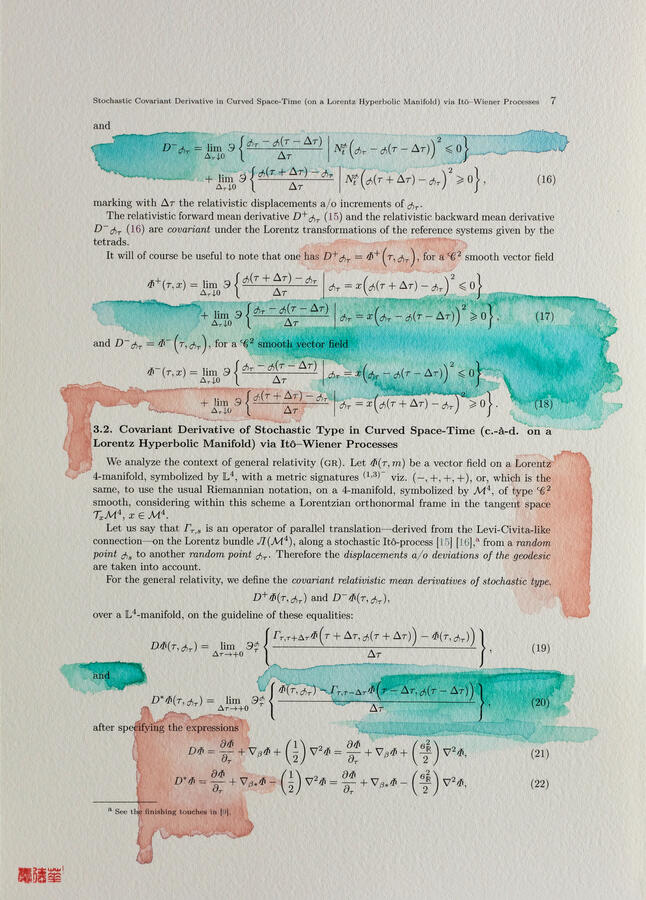 Stochastic Covariant Derivative in Curved Space-Time (on a Lorentz Hyperbolic Manifold) via Itô–Wiener Processes 7
and
D⁻ል_τ = lim_{Δτ↓0} Э { (ል_τ − ል(τ − Δτ)) / Δτ | N_t (ል_τ − ል(τ − Δτ))² ⩽ 0 }
+ lim_{Δτ↓0} Э { (ል(τ + Δτ) − ል_τ) / Δτ | N_t (ል(τ + Δτ) − ል_τ)² ⩾ 0 }, (16)
marking with Δτ the relativistic displacements a/o increments of ል_τ.
The relativistic forward mean derivative D⁺ል_τ (15) and the relativistic backward mean derivative
D⁻ል_τ (16) are covariant under the Lorentz transformations of the reference systems given by the
tetrads.
It will of course be useful to note that one has D⁺ል_τ = Φ⁺(τ, ል_τ), for a 𝒞² smooth vector field
Φ⁺(τ, x) = lim_{Δτ↓0} Э { (ል(τ + Δτ) − ል_τ) / Δτ | ል_τ = x(ል(τ + Δτ) − ል_τ)² ⩽ 0 }
+ lim_{Δτ↓0} Э { (ል_τ − ል(τ − Δτ)) / Δτ | ል_τ = x(ል_τ − ል(τ − Δτ))² ⩾ 0 }, (17)
and D⁻ል_τ = Φ⁻(τ, ል_τ), for a 𝒞² smooth vector field
Φ⁻(τ, x) = lim_{Δτ↓0} Э { (ል_τ − ል(τ − Δτ)) / Δτ | ል_τ = x(ል_τ − ል(τ − Δτ))² ⩽ 0 }
+ lim_{Δτ↓0} Э { (ል(τ + Δτ) − ል_τ) / Δτ | ል_τ = x(ል(τ + Δτ) − ል_τ)² ⩾ 0 }. (18)
3.2. Covariant Derivative of Stochastic Type in Curved Space-Time (c.-à-d. on a
Lorentz Hyperbolic Manifold) via Itô–Wiener Processes
We analyze the context of general relativity (GR). Let Φ(τ, m) be a vector field on a Lorentz
4-manifold, symbolized by 𝕃⁴, with a metric signatures ⁽¹,³⁾⁻ viz. (−, +, +, +), or, which is the
same, to use the usual Riemannian notation, on a 4-manifold, symbolized by ℳ⁴, of type 𝒞²
smooth, considering within this scheme a Lorentzian orthonormal frame in the tangent space
𝒯ₓℳ⁴, x ∈ ℳ⁴.
Let us say that Γ_{τ,s} is an operator of parallel translation—derived from the Levi-Civita-like
connection—on the Lorentz bundle Л(ℳ⁴), along a stochastic Itô-process [15] [16],ᵃ from a random
point ል_s to another random point ል_τ. Therefore the displacements a/o deviations of the geodesic
are taken into account.
For the general relativity, we define the covariant relativistic mean derivatives of stochastic type,
D⁺Φ(τ, ል_τ) and D⁻Φ(τ, ል_τ),
over a 𝕃⁴-manifold, on the guideline of these equalities:
DΦ(τ, ል_τ) = lim_{Δτ→+0} Э_τ { (Γ_{τ,τ+Δτ}Φ(τ + Δτ, ል(τ + Δτ)) − Φ(τ, ል_τ)) / Δτ }, (19)
and
D*Φ(τ, ል_τ) = lim_{Δτ→+0} Э_τ { (Φ(τ, ል_τ) − Γ_{τ,τ−Δτ}Φ(τ − Δτ, ል(τ − Δτ)) / Δτ }, (20)
after specifying the expressions
DΦ = ∂Φ/∂_τ + ∇_βΦ + (1/2) ∇²Φ = ∂Φ/∂_τ + ∇_βΦ + (ϭ²_ℝ/2) ∇²Φ, (21)
D*Φ = ∂Φ/∂_τ + ∇_{β*}Φ − (1/2) ∇²Φ = ∂Φ/∂_τ + ∇_{β*}Φ − (ϭ²_ℝ/2) ∇²Φ, (22)
ᵃ See the finishing touches in [9].